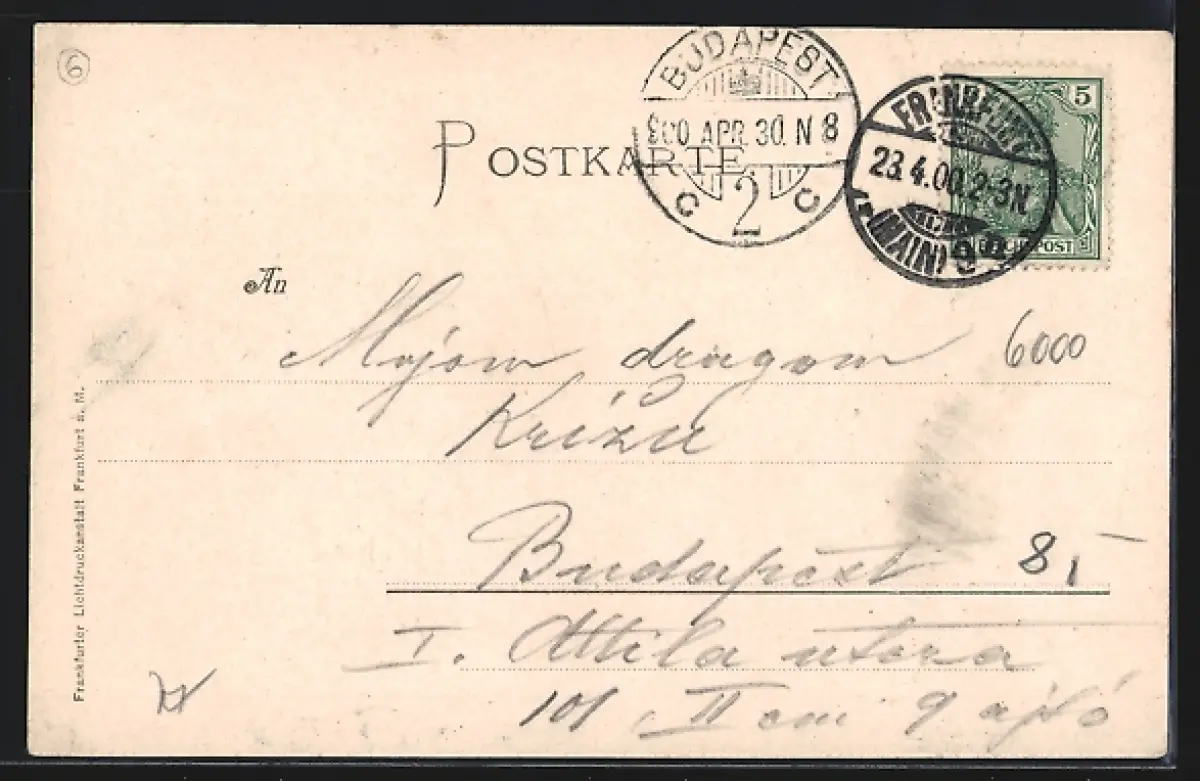 6
BUDAPEST
900 APR. 30. N 8
C 2 C
FRANKFURT
23.4.00.2-3N.
(MAIN) 9
5
REICHSPOST
POSTKARTE.
An
Mojom dragom
6000
Križu
Budapest
8,-
I. Attila utcza
101, II em 9 ajtó
Frankfurter Lichtdruckanstalt Frankfurt a. M.